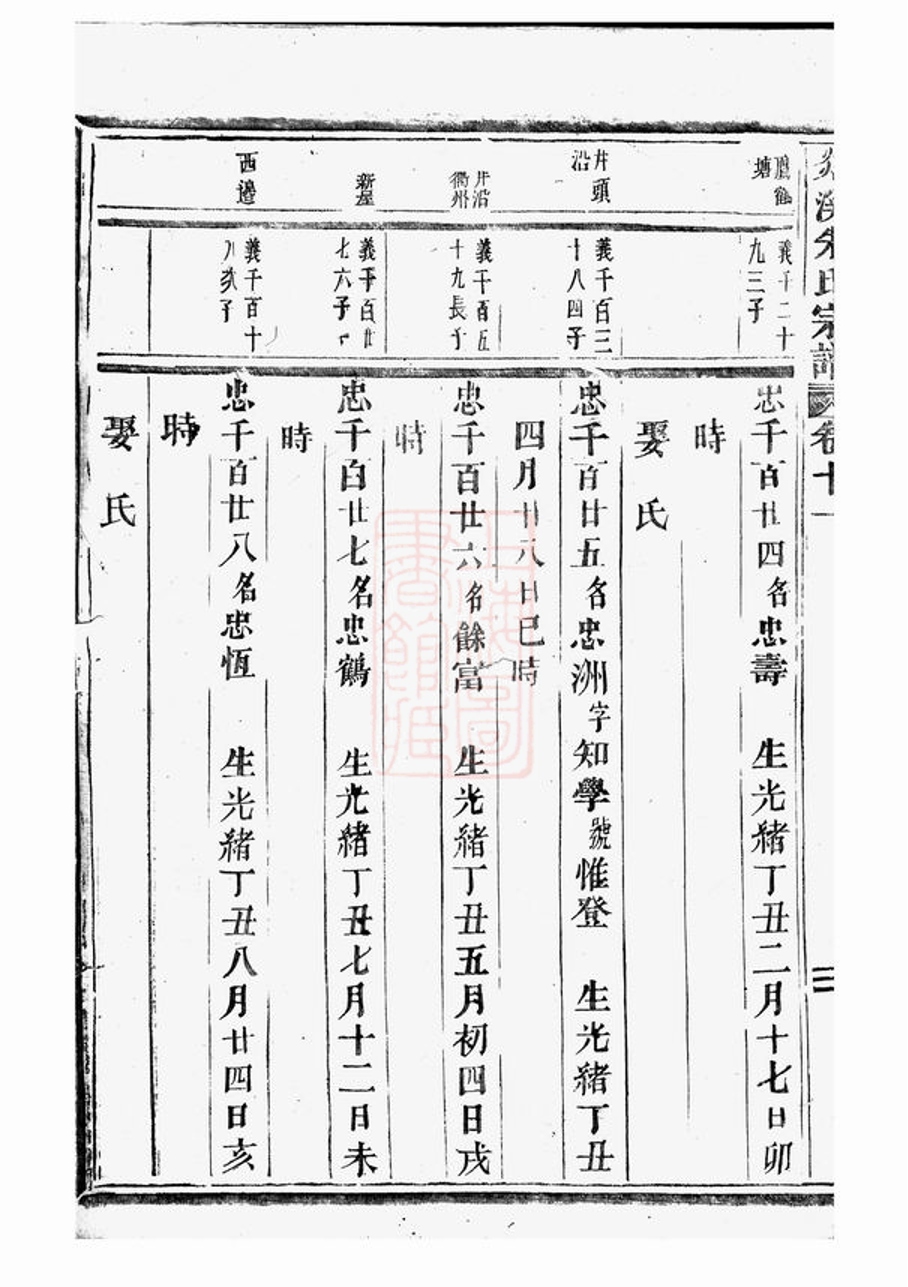 溪朱氏宗譜 卷十一
塘
義千二十
九三子
忠千百廿四名忠壽 生光緒丁丑二月十七日卯
時
娶氏
井頭
沿
義千百三
十八四子
忠千百廿五名忠洲字知學號惟登 生光緒丁丑
四月廿八日巳時
井沿
衢州
義千百五
十九長子
忠千百廿六名餘富 生光緒丁丑五月初四日戌
時
新屋
義千百廿
七六子
忠千百廿七名忠鶴 生光緒丁丑七月十二日未
時
西邊
義千百十
八次子
忠千百廿八名忠恆 生光緒丁丑八月廿四日亥
時
娶氏
上海圖
書館藏